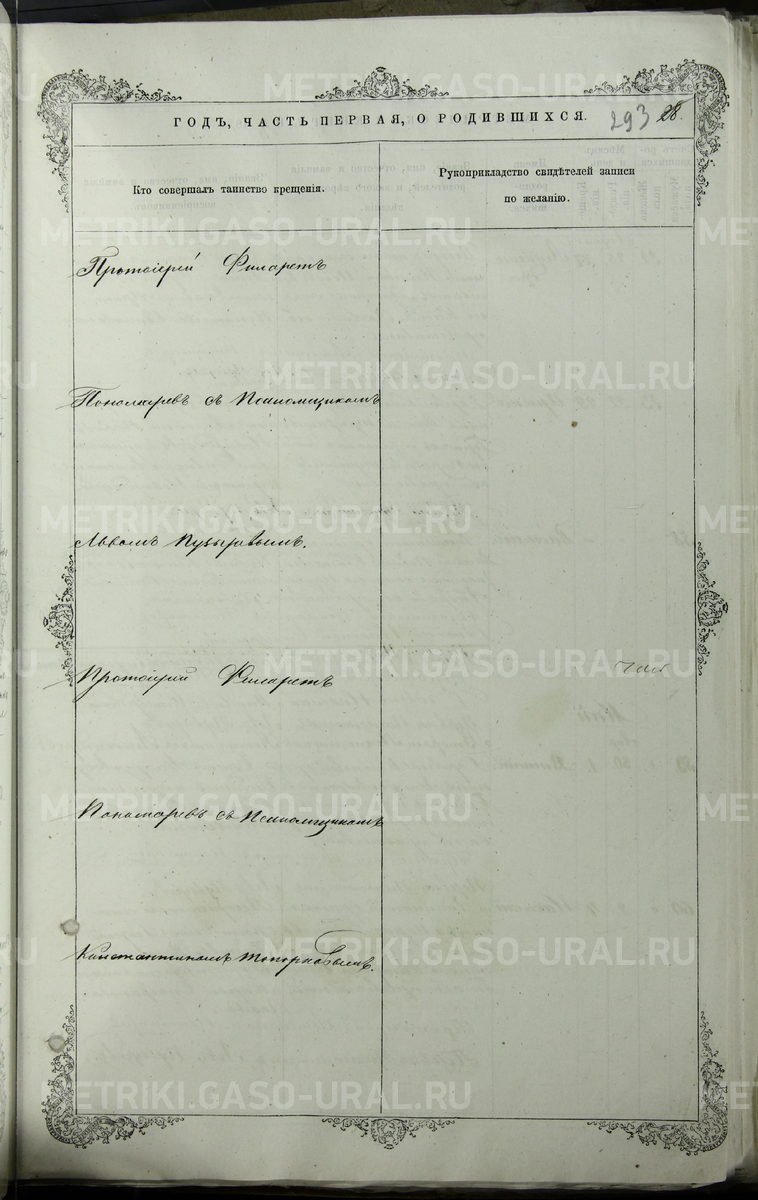 METRIKI.GASO-URAL.RU
ГОДЪ, ЧАСТЬ ПЕРВАЯ, О РОДИВШИХСЯ. 293 28.
Кто совершалъ таинство крещенія.
Рукоприкладство свидѣтелей записи
по желанію.
Протоіерей Филаретъ
Пономаревъ съ Псаломщикомъ
Львомъ Пузыревымъ.
Протоіерей Филаретъ
Пономаревъ съ Псаломщикомъ
Константиномъ Топорковымъ.